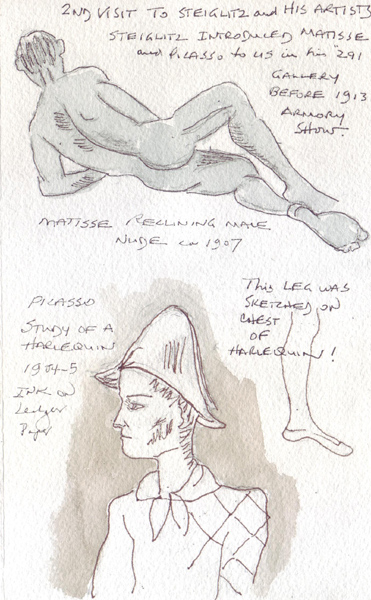 2ND VISIT TO STEIGLITZ and HIS ARTISTS
STEIGLITZ INTRODUCED MATISSE
and PICASSO to US in his "291
GALLERY
BEFORE 1913
ARMORY
SHOW.
MATISSE RECLINING MALE
NUDE ca 1907
PICASSO
STUDY OF A
HARLEQUIN
1904-5
INK ON
Ledger
Paper
This LEG WAS
SKETCHED ON
CHEST
OF
HARLEQUIN!